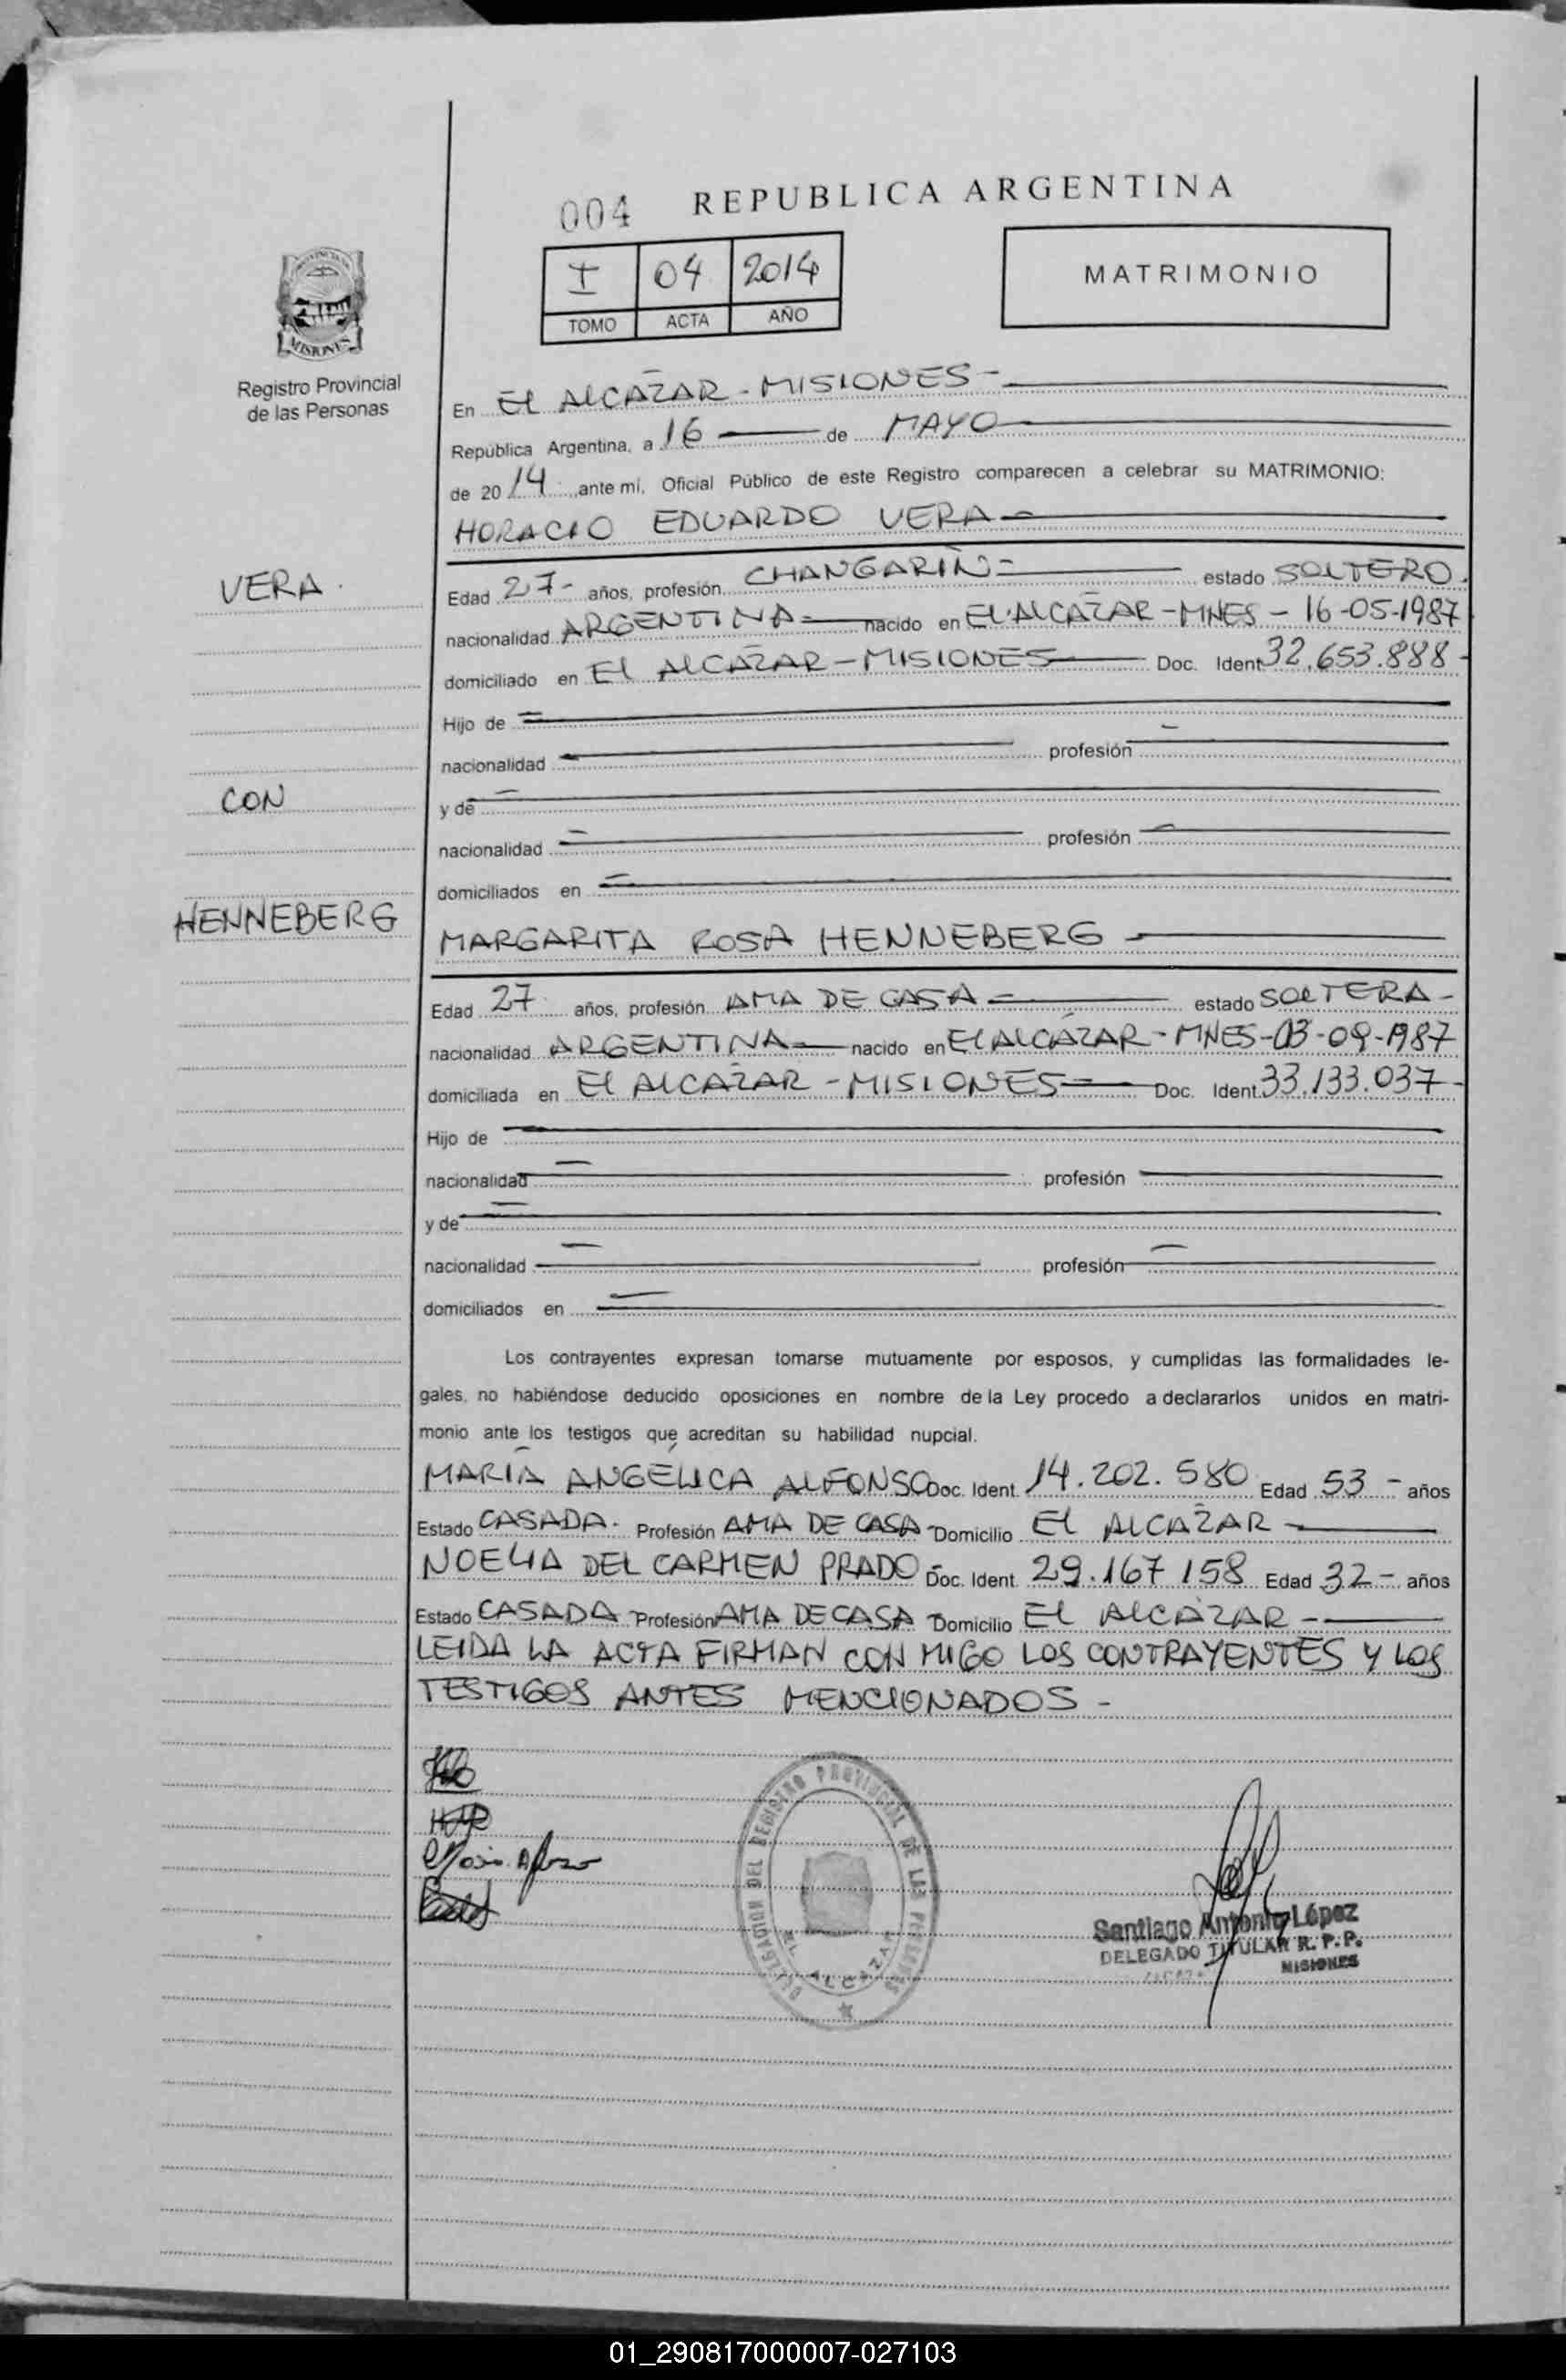 004 REPUBLICA ARGENTINA
I 04 2014
TOMO ACTA AÑO
MATRIMONIO
MISIONES
Registro Provincial
de las Personas
En El ALCAZAR - MISIONES -
República Argentina, a 16 de MAYO
de 2014 ante mí, Oficial Público de este Registro comparecen a celebrar su MATRIMONIO:
HORACIO EDUARDO VERA
VERA
Edad 27- años, profesión CHANGARIN- estado SOLTERO.
nacionalidad ARGENTINA nacido en El ALCAZAR - MNES - 16-05-1987
domiciliado en El ALCAZAR - MISIONES Doc. Ident 32.653.888-
Hijo de
nacionalidad profesión
CON
y de
nacionalidad profesión
domiciliados en
HENNEBERG
MARGARITA ROSA HENNEBERG
Edad 27 años, profesión AMA DE CASA estado SOLTERA-
nacionalidad ARGENTINA nacido en El ALCAZAR - MNES - 03-09-1987
domiciliada en El ALCAZAR - MISIONES Doc. Ident. 33.133.037-
Hijo de
nacionalidad profesión
y de
nacionalidad profesión
domiciliados en
Los contrayentes expresan tomarse mutuamente por esposos, y cumplidas las formalidades le-
gales, no habiéndose deducido oposiciones en nombre de la Ley procedo a declararlos unidos en matri-
monio ante los testigos que acreditan su habilidad nupcial.
MARIA ANGÉLICA ALFONSO Doc. Ident. 14.202.580 Edad 53 - años
Estado CASADA. Profesión AMA DE CASA - Domicilio El ALCAZAR
NOELIA DEL CARMEN PRADO Doc. Ident. 29.167.158 Edad 32 - años
Estado CASADA - Profesión AMA DE CASA Domicilio El ALCAZAR -
LEIDA LA ACTA FIRMAN CON MIGO LOS CONTRAYENTES Y LOS
TESTIGOS ANTES MENCIONADOS -
DELEGACION DEL REGISTRO PROVINCIAL DE LAS PERSONAS
EL ALCAZAR
Santiago Antonio López
DELEGADO TITULAR R. P. P.
MISIONES
01_290817000007-027103